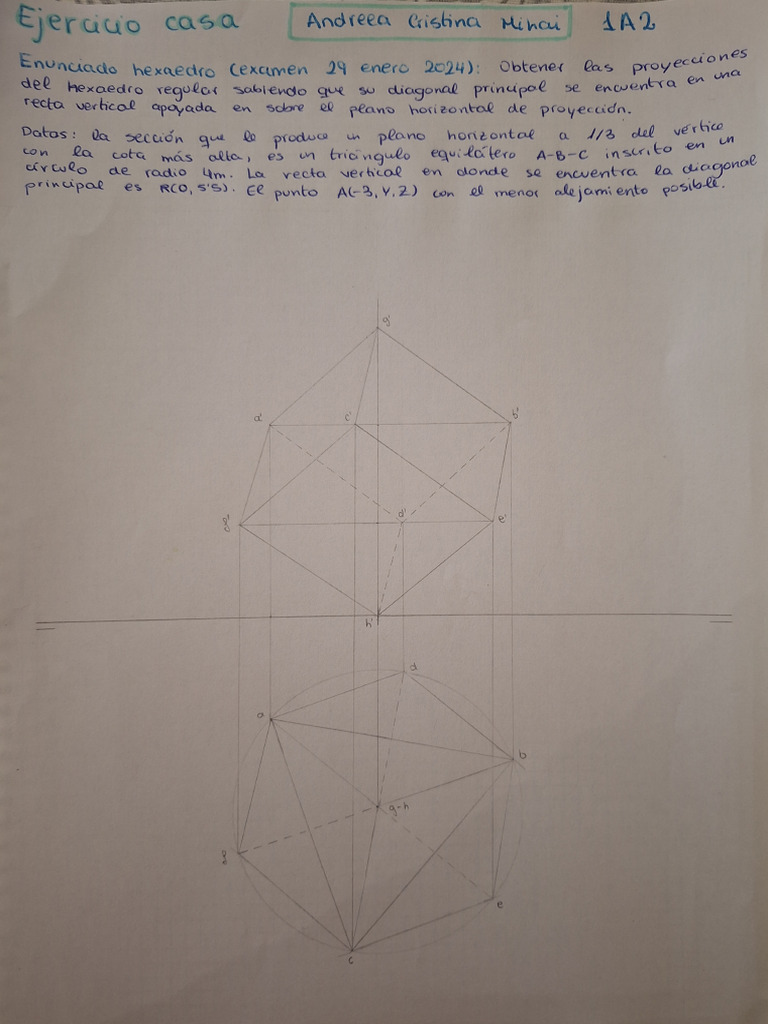 Ejercicio casa
Andreea Cristina Mihai 1A2
Enunciado hexaedro (examen 29 enero 2024): Obtener las proyecciones
del hexaedro regular sabiendo que su diagonal principal se encuentra en una
recta vertical apoyada en sobre el plano horizontal de proyección.
Datos: la sección que le produce un plano horizontal a 1/3 del vértice
con la cota más alta, es un triángulo equilátero A-B-C inscrito en un
círculo de radio 4m. La recta vertical en donde se encuentra la diagonal
principal es R(0, 5'5). El punto A(-3, Y, Z) con el menor alejamiento posible.
g'
a' c' b'
d' e'
h'
d
a
b
g-h
e
c